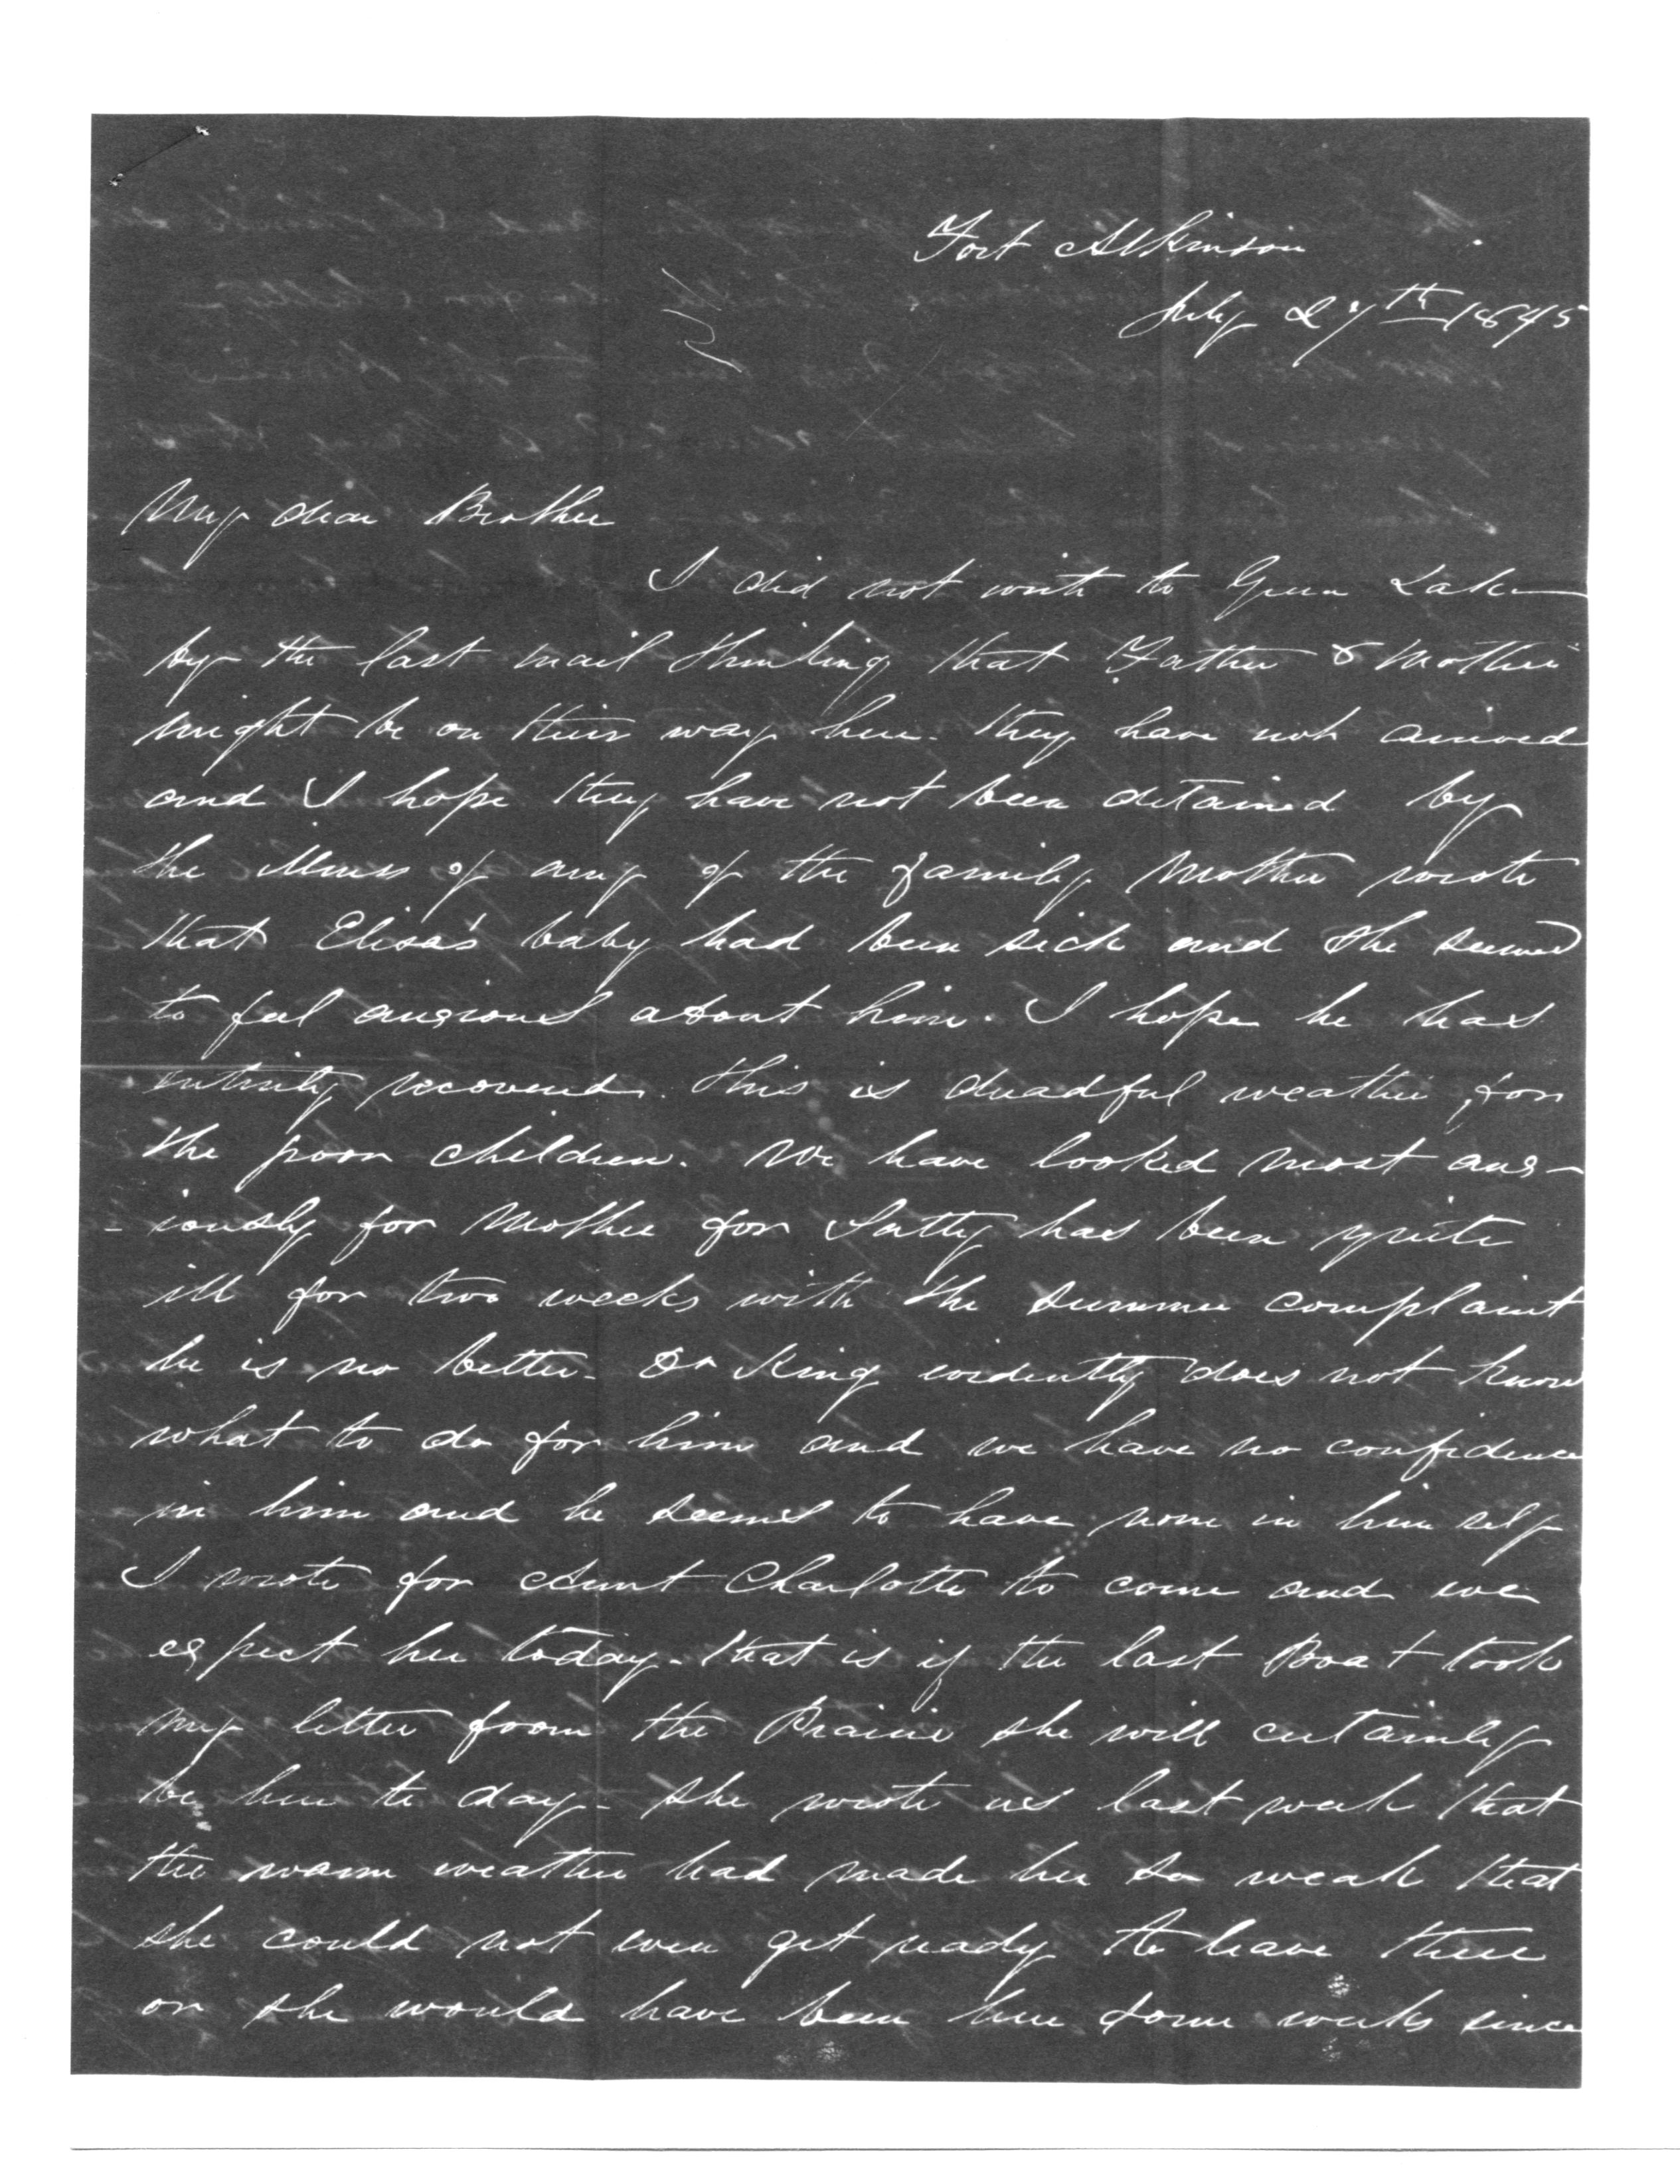 Fort Atkinson
July 27th 1845
My dear Brother
I did not write to Green Lake
by the last mail thinking that Father & Mother
might be on their way here. they have not arrived
and I hope they have not been detained by
the illness of any of the family Mother wrote
that Elisa's baby had been sick and she seemed
to feel anxious about him. I hope he has
entirely recovered. this is dreadful weather for
the poor children. We have looked most anx-
-iously for Mother for has been quite
ill for two weeks with the summer complaint
he is no better- Dr King evidently does not know
what to do for him and we have no confidence
in him and he seems to have none in him self
I wrote for Aunt Charlotte to come and we
expect her today- that is if the last Boat took
my letter from the Prairie she will certainly
be here to day- she wrote us last week that
the warm weather had made her so weak that
she could not even get ready to leave there
or she would have been here some weeks since